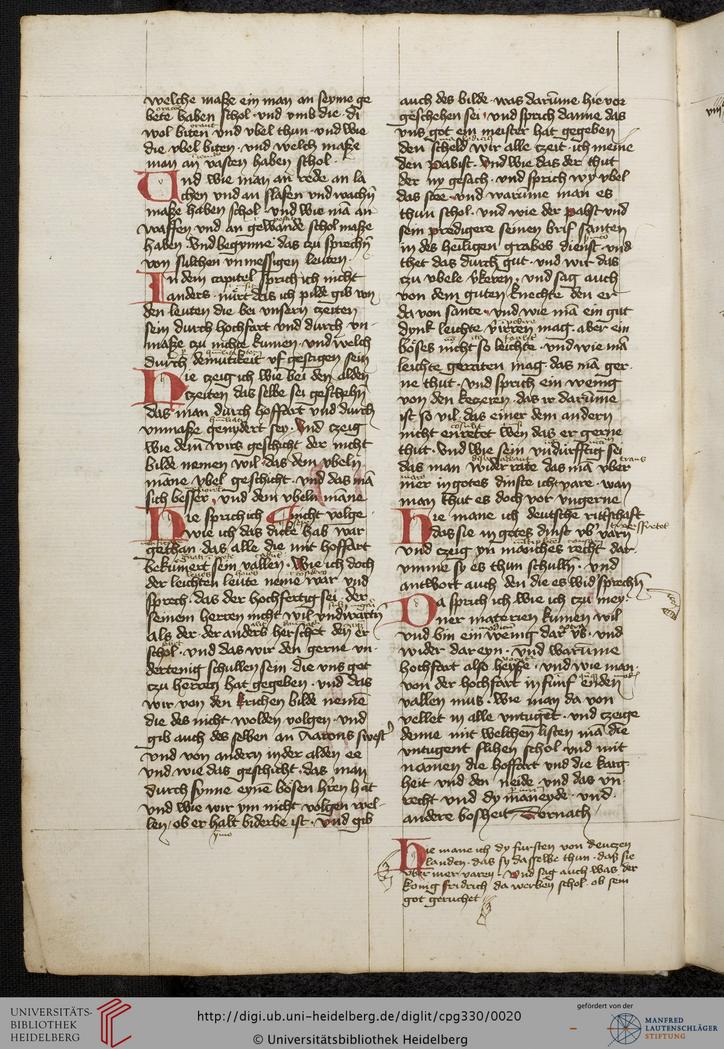 welche maße ein man an seyme ge
bete haben schol · vnd vmb die · di
wol biten vnd vbel thun · vnd wie
die vbel biten · vnd welch maße
man an vasten haben schol ·
Vnd wie man an rede an la
chen vnd an slafen vnd wachen
maße haben schol · vnd wie man an
waffen vnd an gewande schol maße
haben · vnd begynne das zu sprechen
von sulchen vnmessigen leuten ·
In dem capitel sprich ich nicht
anders · nurt das ich pilde gib von
den leuten die bei vnsern czeiten
sein durch hochfart vnd durch vn
maße zu nichte kumen · vnd welch
durch demutikeit vf gestigen sein
Hie czeig ich wie bei den alden
czeiten das selbe sei geschehen
das man durch hoffart vnd durch
vnmaße genydert sey · Vnd czeig
wie dem wirs geschicht der nicht
bilde nemen wil das dem vbeln
manne vbel geschicht · vnd das man
sich besser · vnd dem vbeln manne
nicht volge ·
Hie sprich ich
wie ich das dicke hab war
gethan das alle die mit hoffart
bekumert sein vallen · Wie ich doch
der leichten leute neme war vnd
sprech · das der hochfertig sei · der
seinem herren nicht wil
als der · der anders herschet den er
schol · vnd das wir den gerne vn
dertenig schullen sein die vns got
czu herren hat gegeben · vnd das
wir von den krichen bilde nemen
die des nicht wolden volgen · vnd
gib auch des selben an Aarons swest
vnd von andern in der alden ee
vnd wie das geschicht · das man
durch sunne eynen bosen hren hat
vnd wie wir ym nicht volgen wel
len · ob er halt biderbe ist · vnd gib
auch des bilde · was darumme hie vor
geschehen sei · vnd sprich danne das
vns got ein meister hat gegeben
den scheld wir alle czeit · ich meine
den Pabist · Vnd wie das der thut
der ny gesach · vnd sprich wy vbel
das stee · vnd warumme man es
thun schol · vnd wie der pabst vnd
sein predigere seinen brif santen
in des heiligen grabes dienst · vnd
thet das durch gut · vnd wir das
czu vbele keren · vnd sag auch
von dem guten knechte den er
da von sante · vnd wie man ein gut
dynk leichte virren mag · aber ein
böses nicht so leichte · vnd wie man
leichte gerraten mag das man ger
ne thut · vnd sprich ein wenig
von den kezeren · das ir darumme
ist so vil · das einer dem andern
nicht enretet wen das er gerne
thut · Vnd wie sein vndurfftig sei
das man wider rate das man vber
mer in gotes dinste icht vare · wan
man thut es doch vot vngerne
Hie mane ich deutsche ritterschaft
das sie in gotes dinst vber varn
vnd czeig yn manches recht · dar
vmme sy es thun schullen · vnd
antwort auch den die es widsprechen
Da sprich ich wie ich czu mey
ner materien kumen wil
vnd bin ein wenig dar vs · vnd
wider dar eyn · vnd warumme
hochfart also heyße · vnd wie man
von der hochfart in funf enden
vallen mus · wie man da von
vellet in alle vntugent · vnd czeige
denne mit welchen listen man die
vntugent slihen schol · vnd mit
namen die hoffart vnd die karg
heit vnd den neide · vnd das vn
recht vnd dy maneyde · vnd
andere bosheit Dornach
Hie mane ich dy fursten von deutzen
landen · das sy dasselbe thun · das sie
vber mer varen · Vnd sag auch was der
konig fridrich da werben schol · ob sein
got geruchet
UNIVERSITÄTS-
BIBLIOTHEK
HEIDELBERG
http://digi.ub.uni-heidelberg.de/diglit/cpg330/0020
© Universitätsbibliothek Heidelberg
gefördert von der
MANFRED
LAUTENSCHLÄGER
STIFTUNG